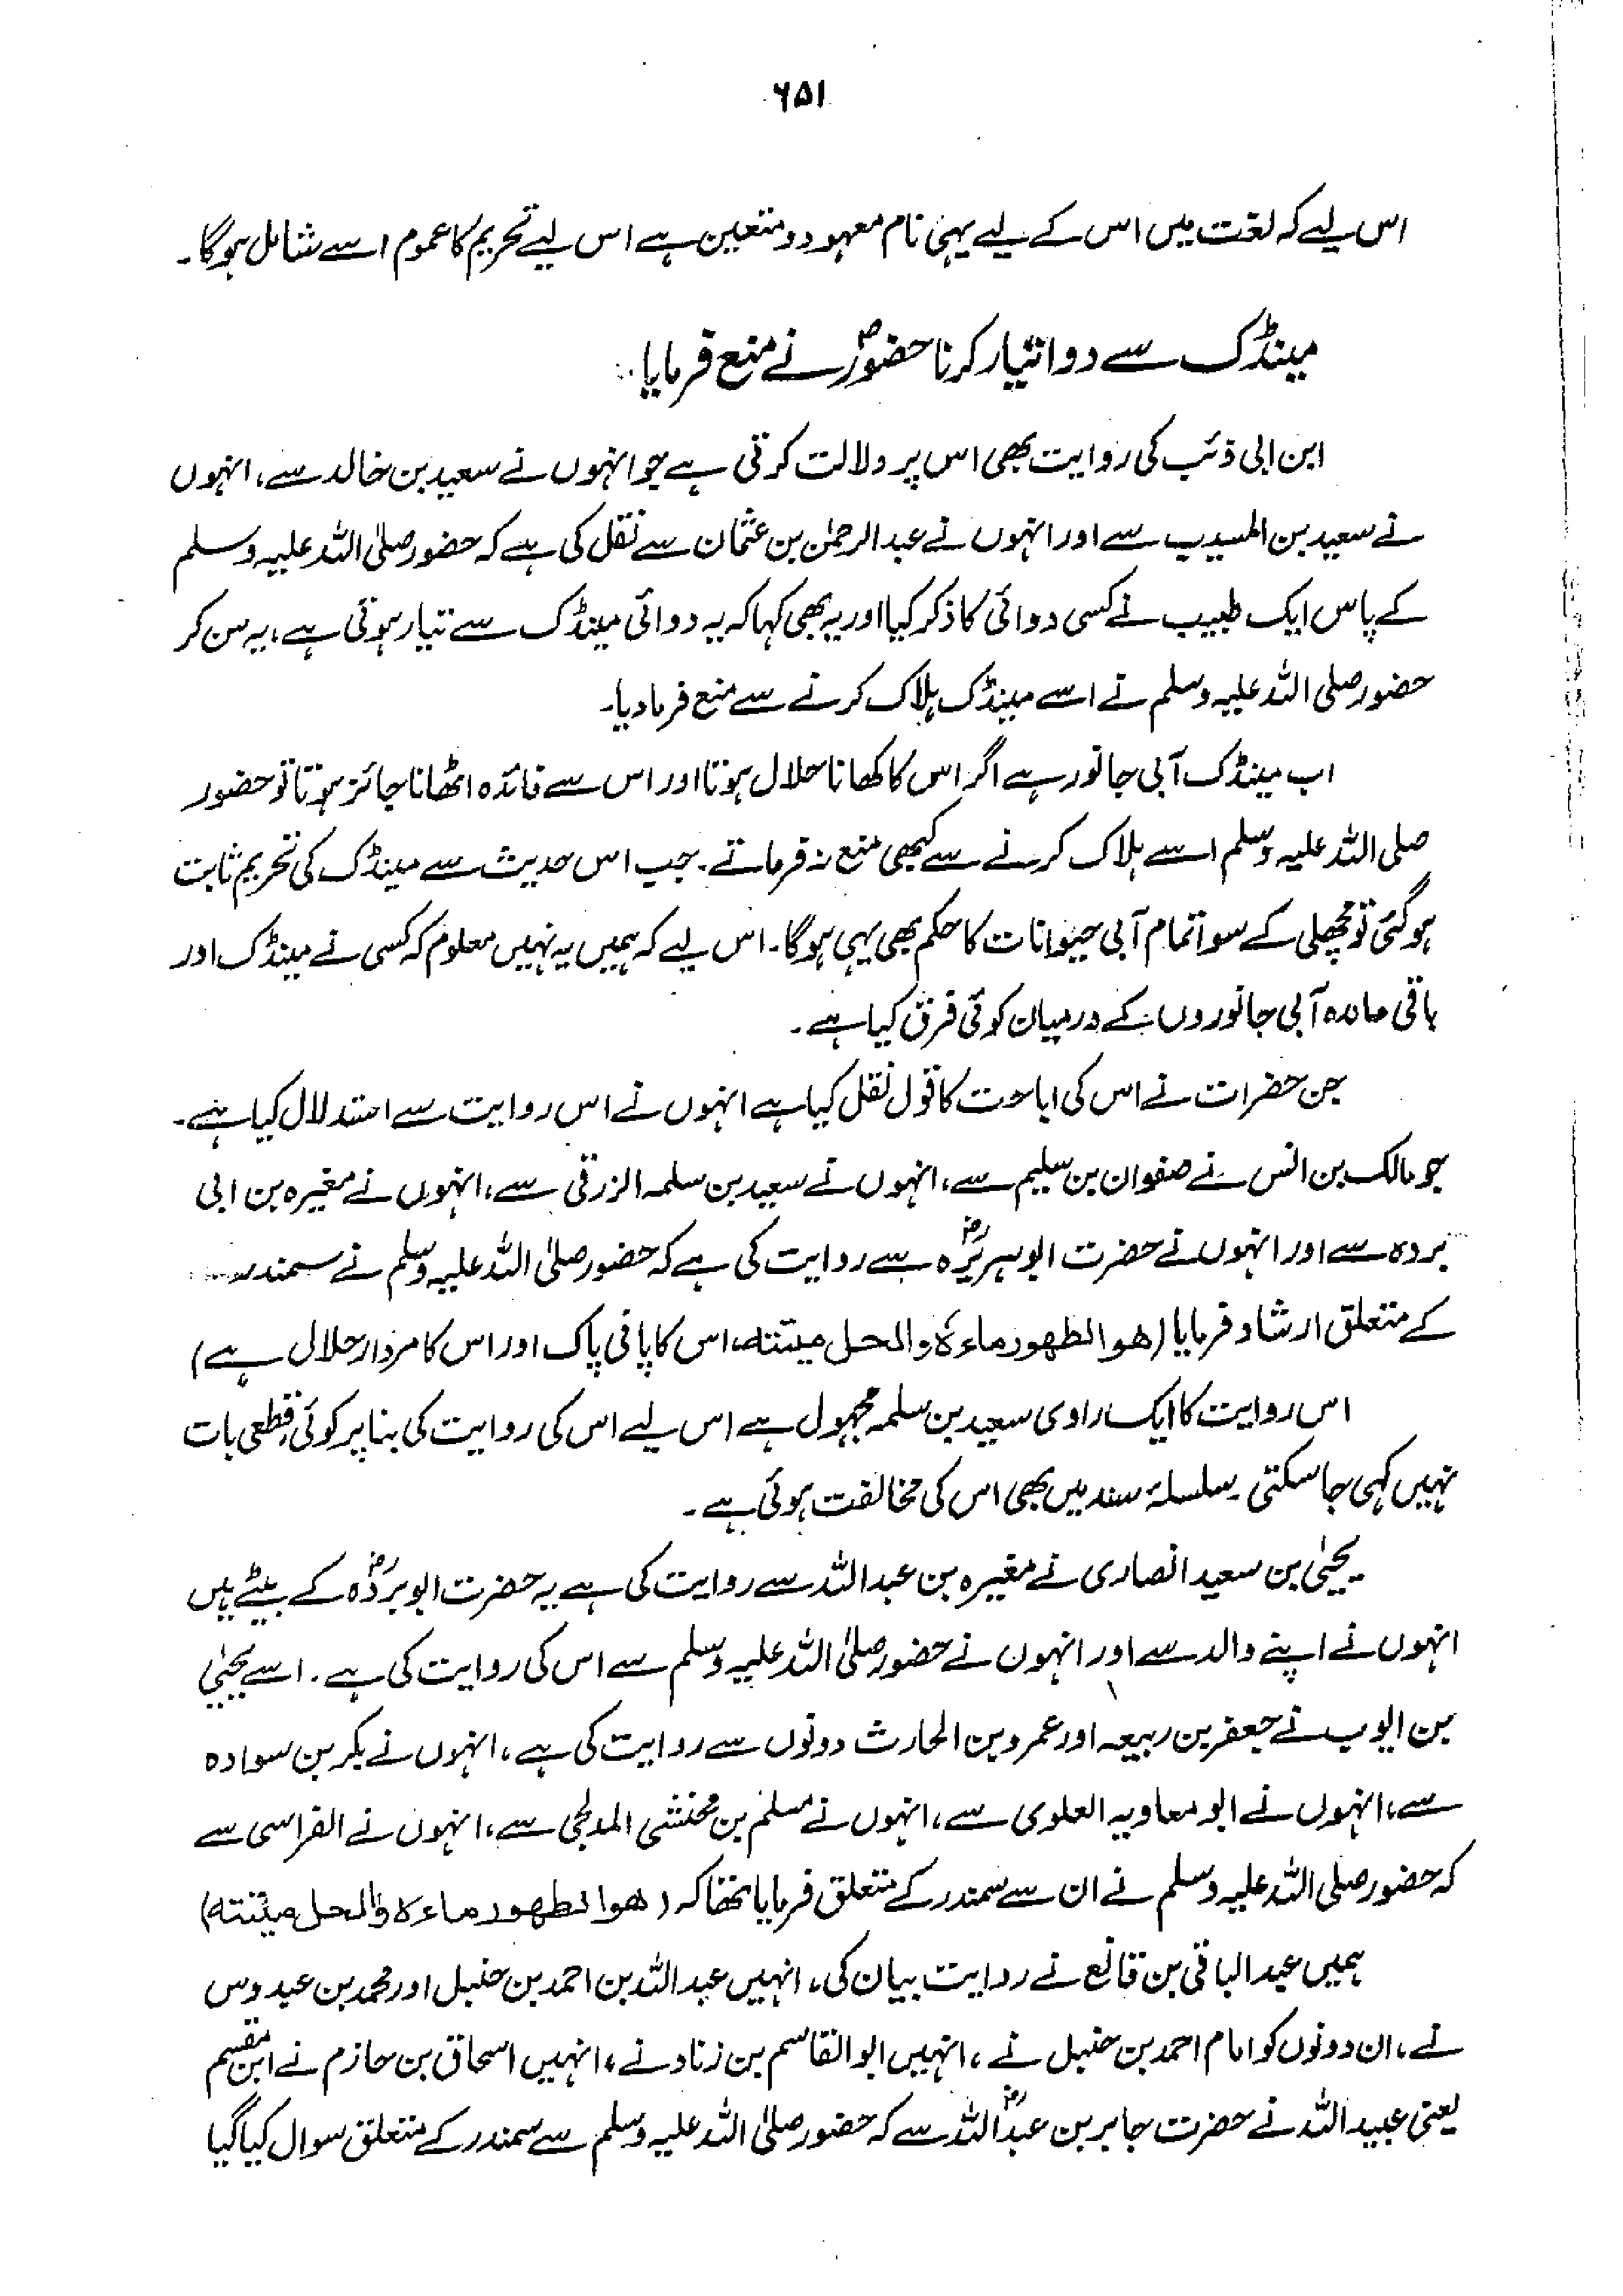 ۶۵۱
اس لیے کہ لغت میں اس کے لیے یہی نام معہود و متعین ہے اس لیے تحریم کا عموم اسے شامل ہوگا۔
مینڈک سے دوا تیار کرنا حضورؐ نے منع فرمایا
ابن ابی ذئب کی روایت بھی اس پر دلالت کرتی ہے جو انہوں نے سعید بن خالد سے، انہوں
نے سعید بن المسیب سے اور انہوں نے عبدالرحمٰن بن عثمان سے نقل کی ہے کہ حضور صلی اللہ علیہ وسلم
کے پاس ایک طبیب نے کسی دوائی کا ذکر کیا اور یہ بھی کہا کہ یہ دوائی مینڈک سے تیار ہوتی ہے، یہ سن کر
حضور صلی اللہ علیہ وسلم نے اسے مینڈک ہلاک کرنے سے منع فرما دیا۔
اب مینڈک آبی جانور ہے اگر اس کا کھانا حلال ہوتا اور اس سے فائدہ اٹھانا جائز ہوتا تو حضور
صلی اللہ علیہ وسلم اسے ہلاک کرنے سے کبھی منع نہ فرماتے۔ جب اس حدیث سے مینڈک کی تحریم ثابت
ہوگئی تو مچھلی کے سوا تمام آبی حیوانات کا حکم بھی یہی ہوگا۔ اس لیے کہ ہمیں یہ نہیں معلوم کہ کسی نے مینڈک اور
باقی ماندہ آبی جانوروں کے درمیان کوئی فرق کیا ہے۔
جن حضرات نے اس کی اباحت کا قول نقل کیا ہے انہوں نے اس روایت سے استدلال کیا ہے۔
جو مالک بن انس نے صفوان بن سلیم سے، انہوں نے سعید بن سلمہ الزرقی سے، انہوں نے مغیرہ بن ابی
بردہ سے اور انہوں نے حضرت ابوہریرہؓ سے روایت کی ہے کہ حضور صلی اللہ علیہ وسلم نے سمندر
کے متعلق ارشاد فرمایا (ھو الطھور ماءہ والحل میتتہ، اس کا پانی پاک اور اس کا مردار حلال ہے)
اس روایت کا ایک راوی سعید بن سلمہ مجہول ہے اس لیے اس کی روایت کی بنا پر کوئی قطعی بات
نہیں کہی جاسکتی۔ سلسلۂ سند میں بھی اس کی مخالفت ہوئی ہے۔
یحییٰ بن سعید انصاری نے مغیرہ بن عبداللہ سے روایت کی ہے یہ حضرت ابوبردہؓ کے بیٹے ہیں
انہوں نے اپنے والد سے اور انہوں نے حضور صلی اللہ علیہ وسلم سے اس کی روایت کی ہے۔ اسے یحییٰ
بن ایوب نے جعفر بن ربیعہ اور عمرو بن الحارث دونوں سے روایت کی ہے، انہوں نے بکر بن سوادہ
سے، انہوں نے ابو معاویہ العلوی سے، انہوں نے مسلم بن مخشی المدلجی سے، انہوں نے الفراسی سے
کہ حضور صلی اللہ علیہ وسلم نے ان سے سمندر کے متعلق فرمایا تھا کہ (ھو الطھور ماءہ والحل میتتہ)
ہمیں عبدالباقی بن قانع نے روایت بیان کی، انہیں عبداللہ بن احمد بن حنبل اور محمد بن عبدوس
نے، ان دونوں کو امام احمد بن حنبل نے، انہیں ابوالقاسم بن زناد نے، انہیں اسحاق بن حازم نے ابن مقسم
یعنی عبیداللہ نے حضرت جابر بن عبداللہؓ سے کہ حضور صلی اللہ علیہ وسلم سے سمندر کے متعلق سوال کیا گیا